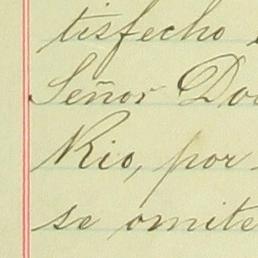 tisfecho
Señor Do
Rio, por
se omite